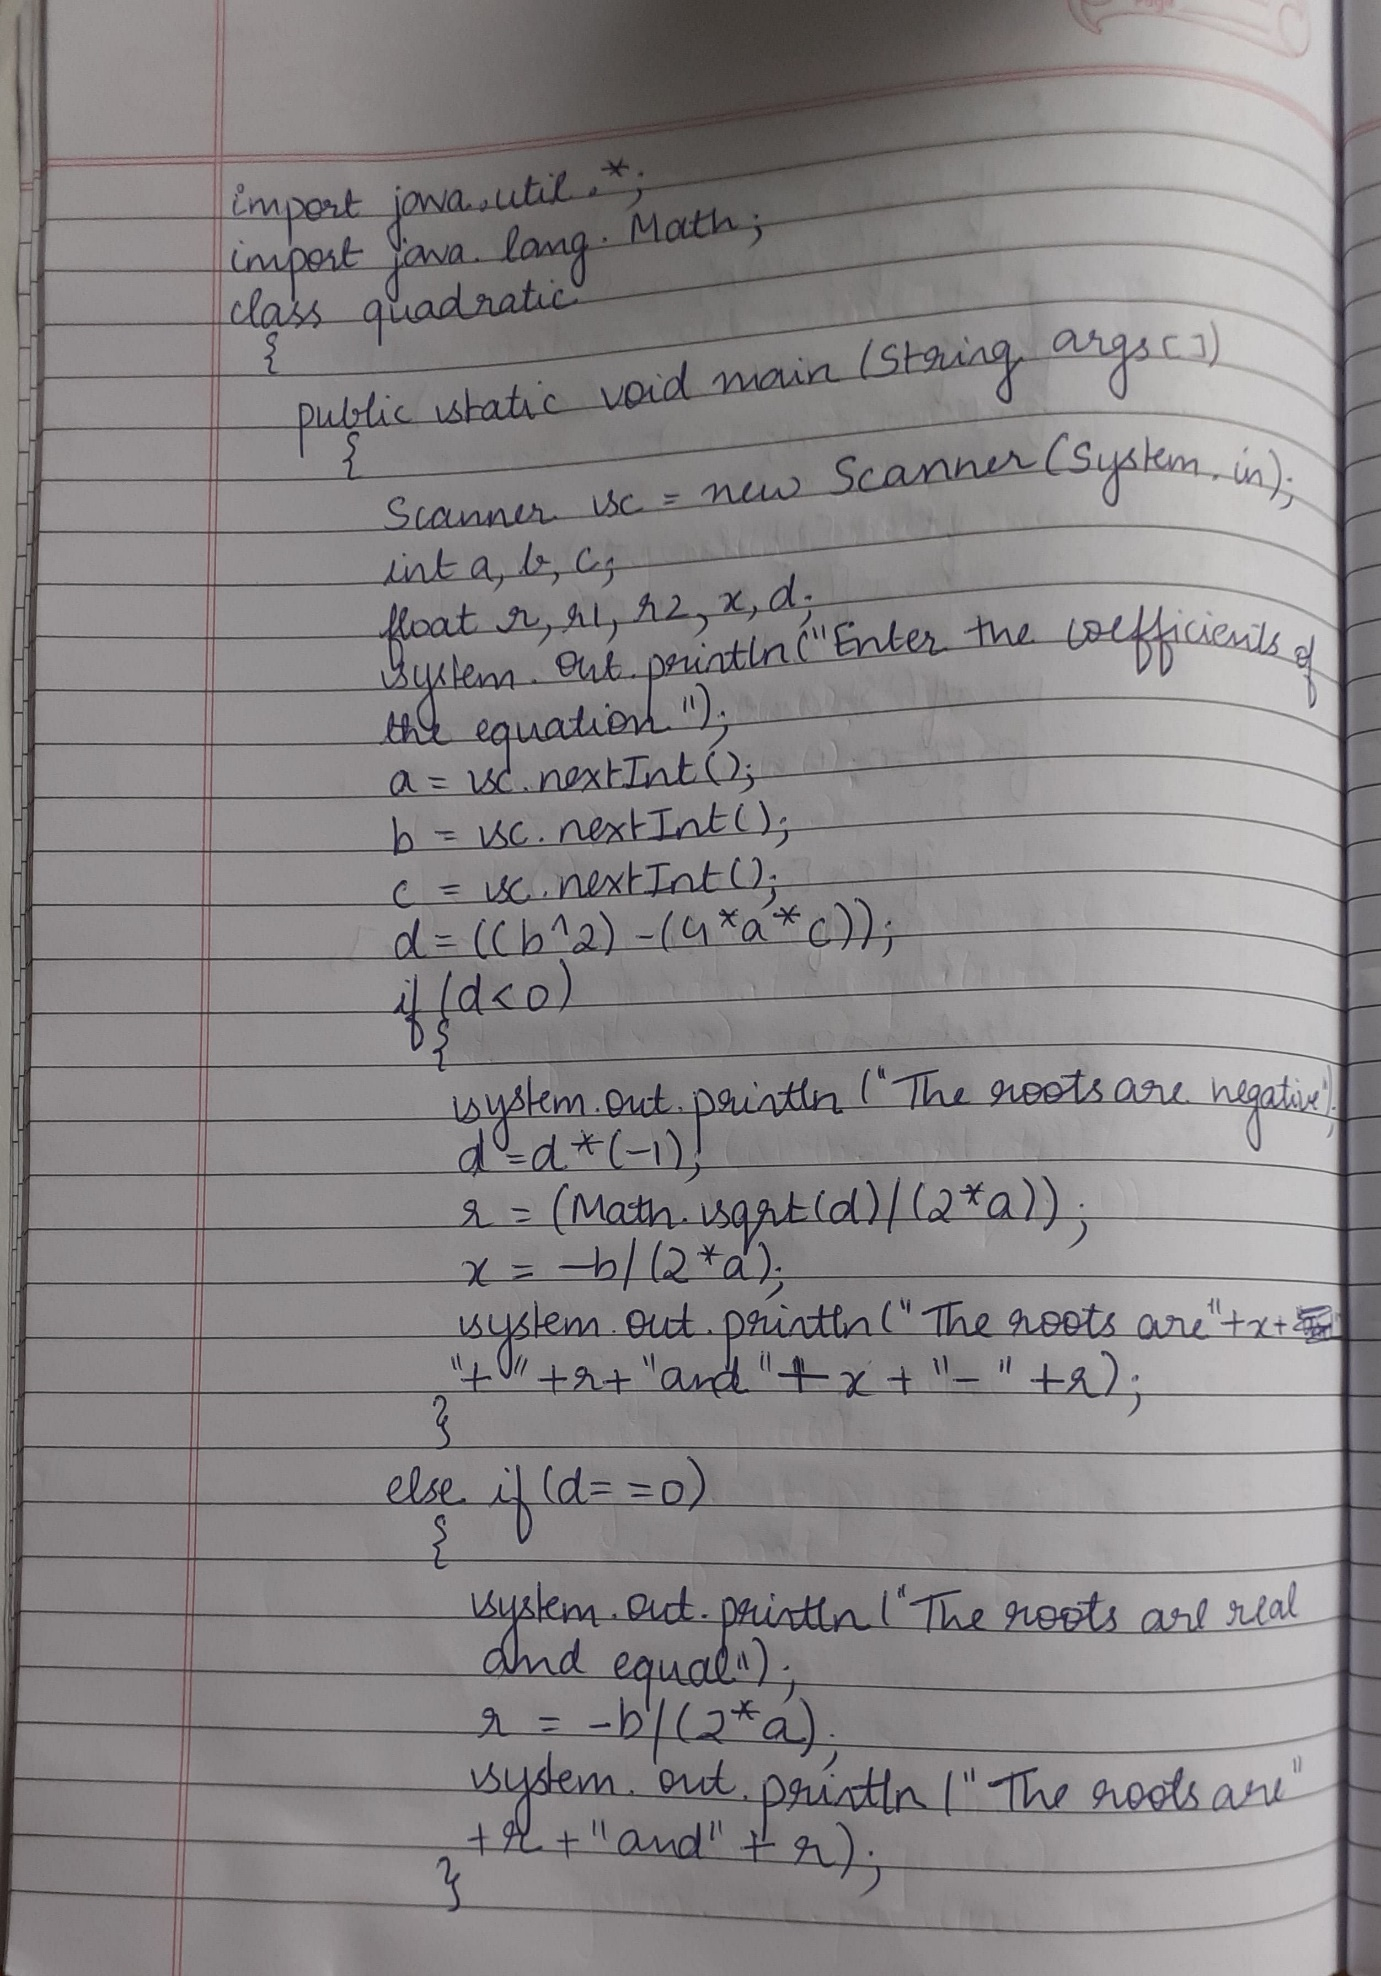 import java.util.*;
import java.lang.Math;
class quadratic
{
public static void main (String args[])
{
Scanner sc = new Scanner (System.in);
int a, b, c;
float r, r1, r2, x, d;
System.out.println("Enter the coefficients of
the equation");
a = sc.nextInt();
b = sc.nextInt();
c = sc.nextInt();
d = ((b^2) - (4*a*c));
if (d<0)
{
system.out.println ("The roots are negative");
d = d*(-1);
r = (Math.sqrt(d)/(2*a));
x = -b/(2*a);
system.out.println("The roots are"+x+
"+"+r+"and"+x+"-"+r);
}
else if (d==0)
{
system.out.println ("The roots are real
and equal");
r = -b/(2*a);
system.out.println ("The roots are"
+r+"and"+r);
}